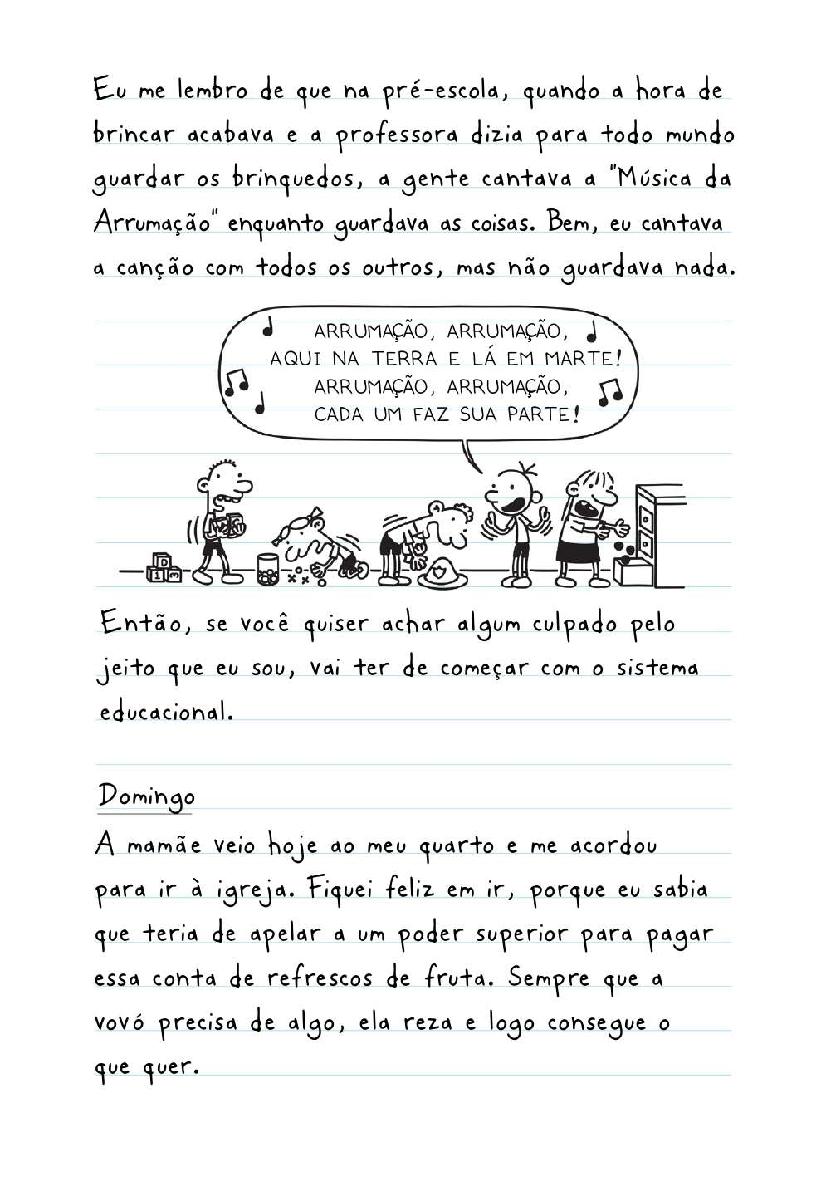 Eu me lembro de que na pré-escola, quando a hora de
brincar acabava e a professora dizia para todo mundo
guardar os brinquedos, a gente cantava a "Música da
Arrumação" enquanto guardava as coisas. Bem, eu cantava
a canção com todos os outros, mas não guardava nada.
ARRUMAÇÃO, ARRUMAÇÃO,
AQUI NA TERRA E LÁ EM MARTE!
ARRUMAÇÃO, ARRUMAÇÃO,
CADA UM FAZ SUA PARTE!
Então, se você quiser achar algum culpado pelo
jeito que eu sou, vai ter de começar com o sistema
educacional.
Domingo
A mamãe veio hoje ao meu quarto e me acordou
para ir à igreja. Fiquei feliz em ir, porque eu sabia
que teria de apelar a um poder superior para pagar
essa conta de refrescos de fruta. Sempre que a
vovó precisa de algo, ela reza e logo consegue o
que quer.